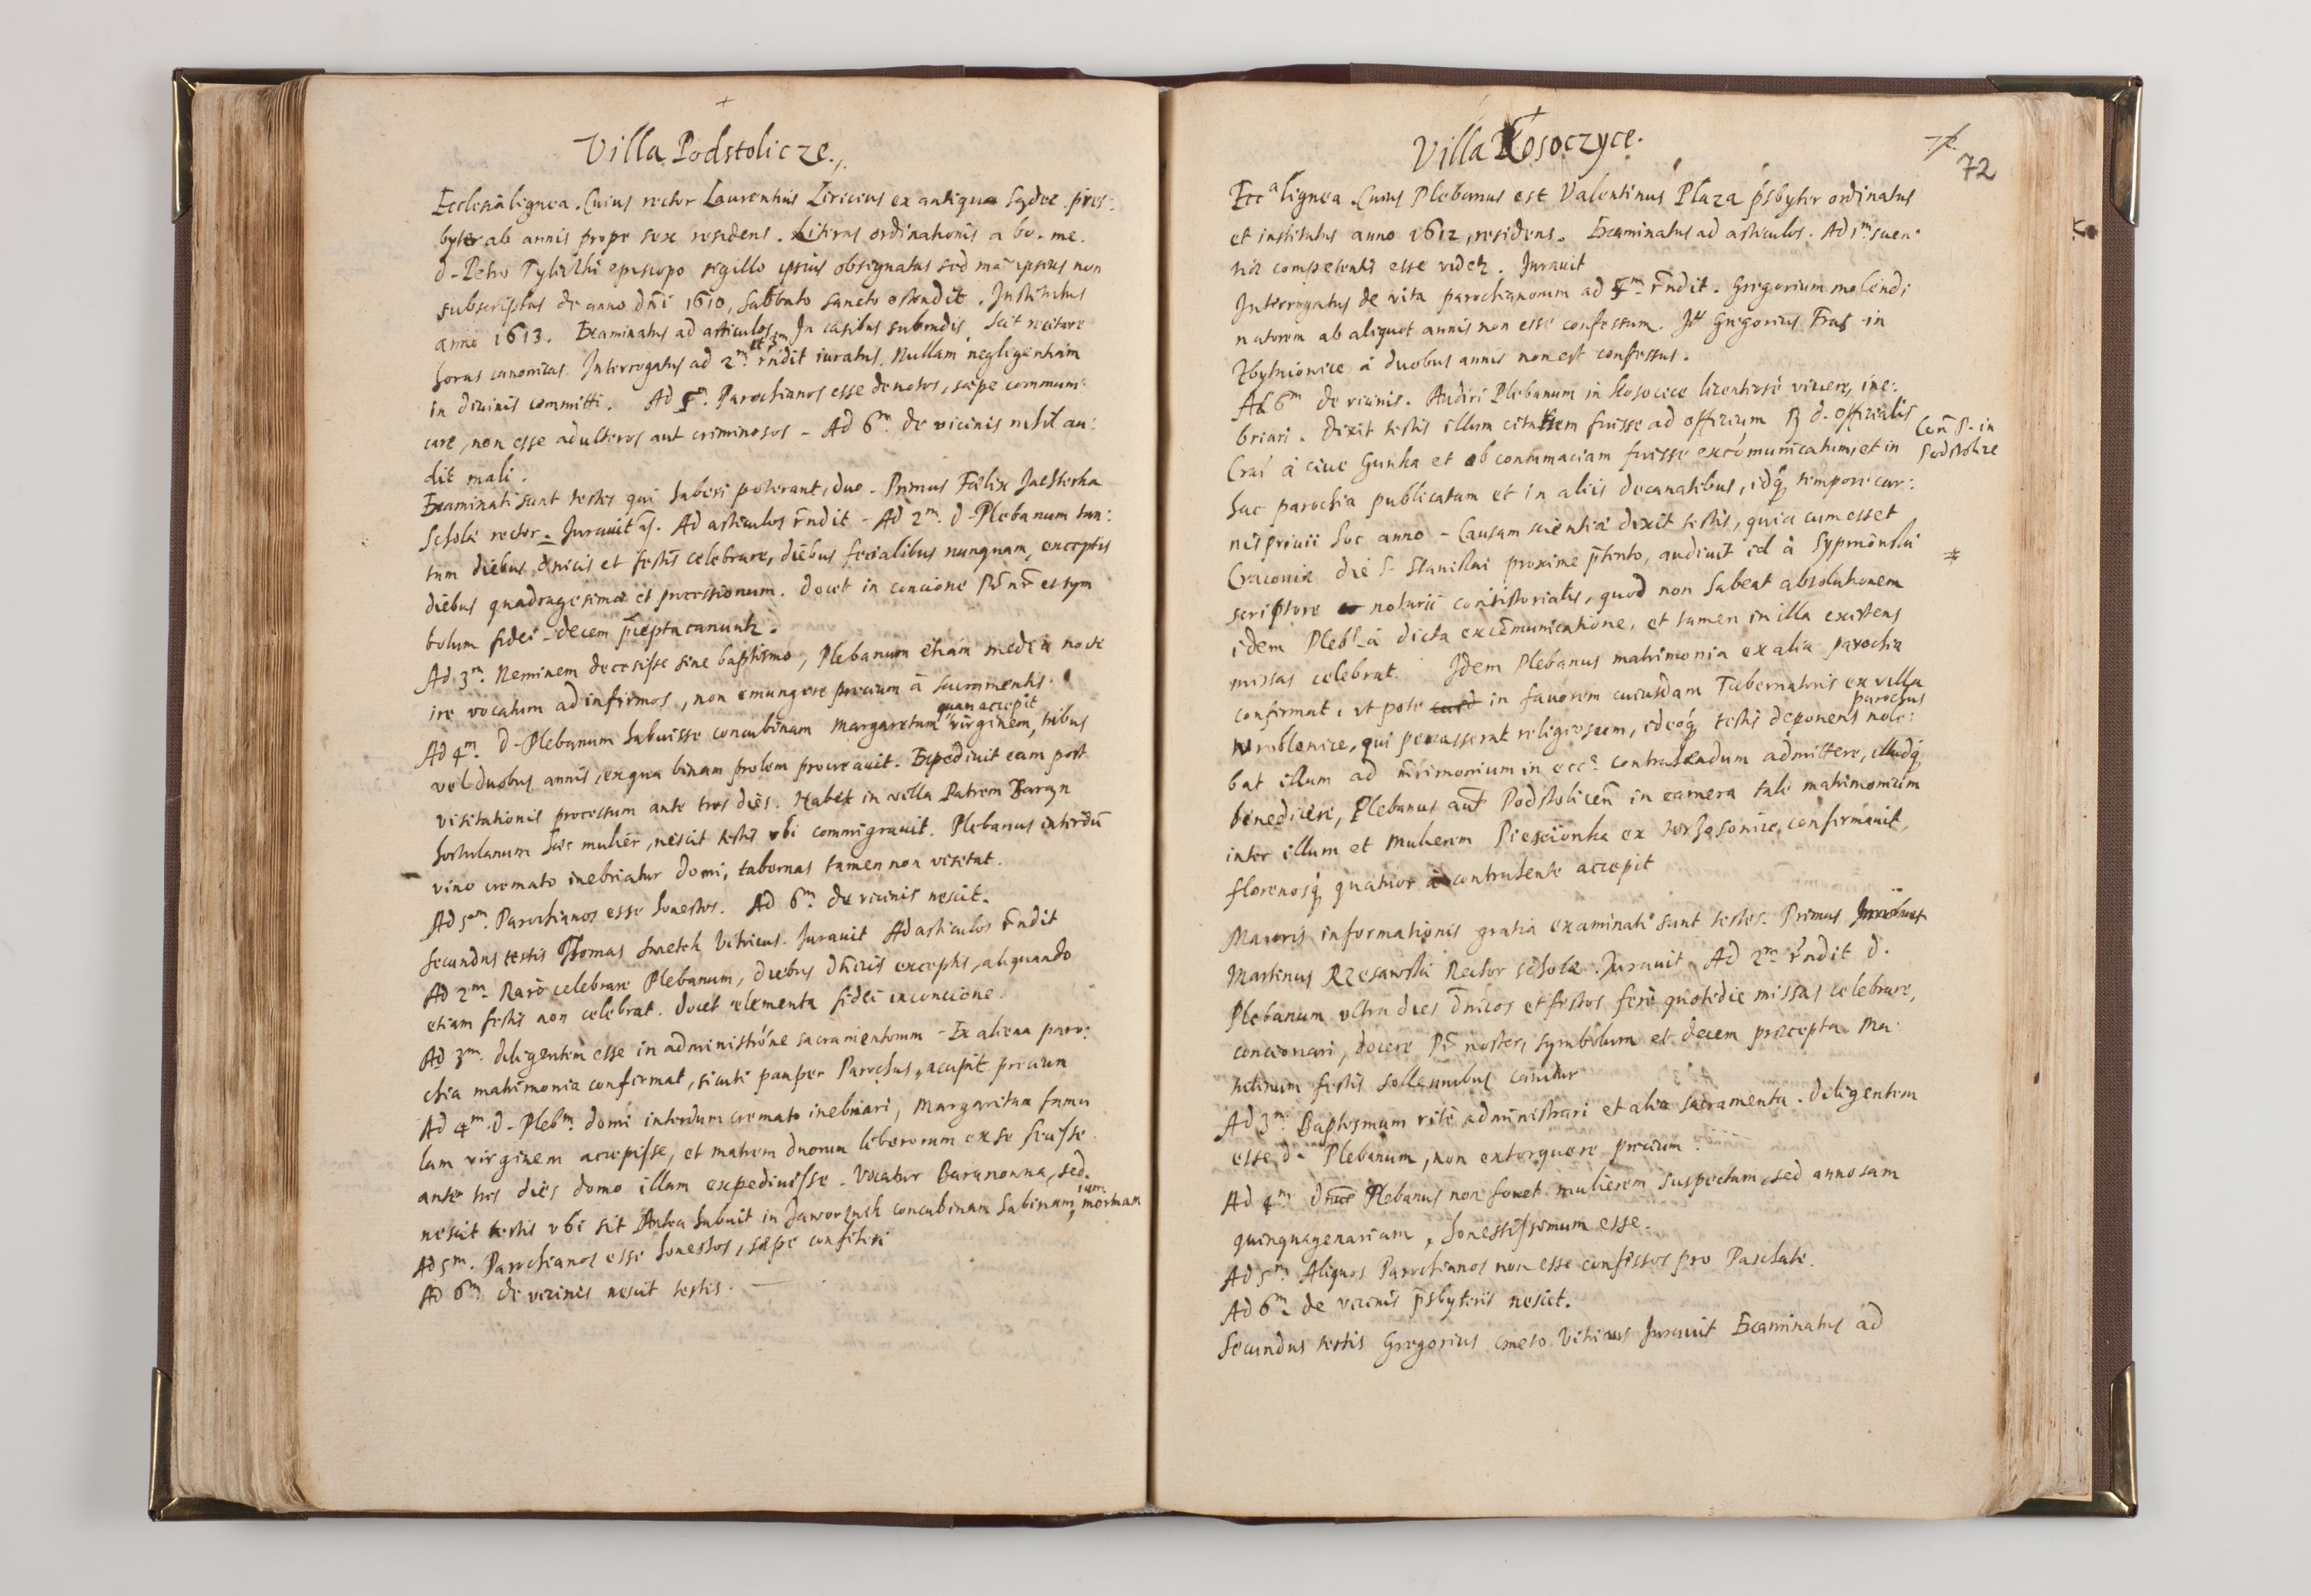 +
Villa Podstolicze.
Ecclesia lignea. Cuius rector Laurentius Liricius ex antiqua Sydee. pres:
byter ab annis prope sex residens. Literas ordinationis a bo. me.
d. Petro Tylichi episcopo sigillo ipsius obsignatas sed ma ipsius non
subscriptas de anno dñi 1610, Sabbato sancto ostendit. Institutus
anno 1613. Examinatus ad articulos. In casibus subrudis, scit recitare
horas canonicas. Interrogatus ad 2m. et 3m r̃ndit iuratus. Nullam negligentiam
in diuinis committi. Ad 5m. Parochianos esse deuotos, sæpe communi:
care, non esse adulteros aut criminosos - Ad 6m. de vicinis nihil au:
dit mali.
Examinati sunt testes qui haberi poterant, duo. Primus Fælix
Scholæ rector. Jurauit. Ad articulos r̃ndit - Ad 2m. d. Plebanum tan:
tum diebus dnicis et festis celebrare, diebus ferialibus nunquam, exceptis
diebus quadragesimæ et processionum. Docet in concione Pr̃ nr̃ et sym
bolum fidei - decem p̃cepta canuntr.
Ad 3m. Neminem decessisse sine baptismo, Plebanum etiam media nocte
ire vocatum ad infirmos, non emungere precium à sacramentis.
Ad 4m. d. Plebanum habuisse concubinam Margaretam quam accepit virginem, tribus
vel duobus annis, ex qua binam prolem procreauit. Expediuit eam post
visitationis processum ante tres dies. Habet in villa Patrem Baran
hortulanum hæc mulier, nescit testis vbi commigrauit. Plebanus interdũ
vino cremato inebriatur domi, tabernas tamen non visitat.
Ad 5m. Parochianos esse honestos. Ad 6m. de vicinis nescit.
Secundus testis Thomas Smetek Vitricus. Jurauit Ad articulos r̃ndit
Ad 2m. Raro celebrare Plebanum, diebus dñicis exceptis, aliquando
etiam festis non celebrat. Docet elementa fidei in concione.
Ad 3m. diligentem esse in administrõne sacramentorum - Ex aliena paro:
chia matrimonia confirmat, sicuti pauper Parochus, accipit precium
Ad 4m. d. Plebm. domi interdum cremato inebriari, Margaritam famu
lam virginem accepisse, et matrem duorum liberorum ex se fecisse.
ante tres dies domo illam expediuisse. Vocatur Baranowna, sed
nescit testis vbi sit Antea habuit in Jaworznik concubinam Sabinam, iam mortuam
Ad 5m. Parochianos esse honestos, sæpe confiteri
Ad 6m de vicinis nescit testis.
+
Villa Kosoczyce.
72
Ecca lignea. Cuius Plebanus est Valentinus Plaza p̃sbyter ordinatus
et institutus anno 1612, residens. Examinatus ad articulos. Ad 1m. scien:
tiæ competentis esse videtr. Jurauit
Interrogatus de vita parochianorum ad 5m. r̃ndit. Gregorium molendi
natorem ab aliquot annis non esse confessum. Gregorius in
Zbytniovice à duobus annis non est confessus.
Ad 6m de vicinis. Audiri Plebanum in Kosocice licentiosè viuere, ine:
briari. Dixit testis illum citatum fuisse ad officium R d. officialis
Crac̃ à ciue Gunka et ob contumaciam fuisse excõmunicatum, et in
Coñ P. in
Podstolice
hac parochia publicatum et in aliis decanatibus, idq, tempore car:
nispriuii hoc anno - Causam scientiæ dixit testis, quia cum esset
Cracouiæ die S. Stanislai proxime p̃terito, audiuit id à Sypniewski
scriptore notarii consistorialis, quod non habeat absolutionem
idem Plebs à dicta excõmunicatione, et tamen in illa existens
missas celebrat. Idem Plebanus matrimonia ex alia parochia
confirmat, vt pote in fauorem cuiusdam Tabernatoris ex villa
Wroblovice, qui percusserat religiosum, ideoq, testis deponens parochus nole:
bat illum ad m̃rimonium in ecca contrahendum admittere, illudq,
benedicere, Plebanus aut̃ Podstolicen̄ in camera tale matrimonium
inter illum et mulierem Piescionka ex confirmauit,
florenosq, quatuor à contrahente accepit
Maioris informationis gratia examinati sunt testes. Primus
Martinus Rzesawski Rector scholæ. Jurauit Ad 2m. r̃ndit d.
Plebanum vltra dies dñicos et festos ferè quotidie missas celebrare,
concionari, docere Pr̃ noster, symbolum et decem præcepta. Ma:
tutinum festis sollennibus canitur
Ad 3m. Baptismum ritè administrari et alia sacramenta. diligentem
esse d. Plebanum, non extorquere precium.
Ad 4m. Plebanus non fouet mulierem suspectam, sed annosam
quinquagenariam, honestissimum esse.
Ad 5m. Aliquos Parochianos non esse confessos pro Paschate.
Ad 6m. de vicinis p̃sbyteris nescit.
Secundus testis Gregorius cmeto Vitricus Jurauit Examinatus ad